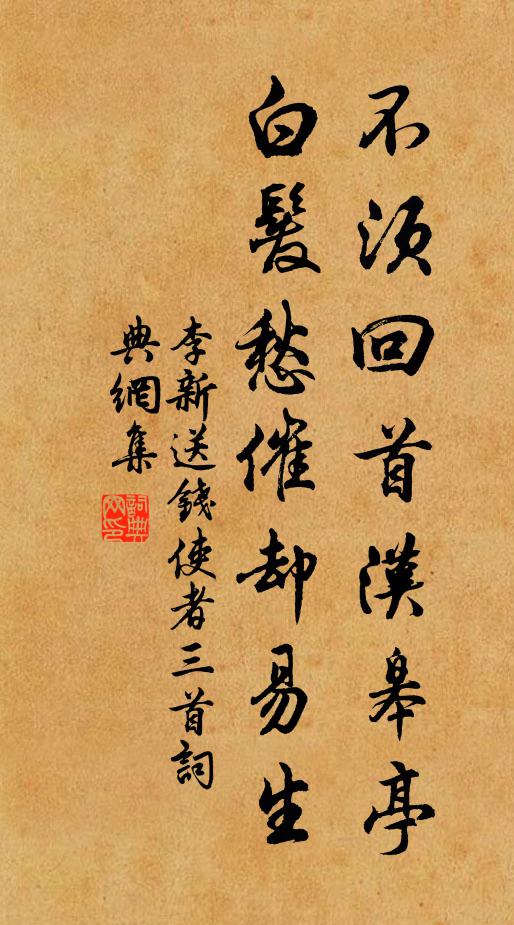 不須回首漢皋亭
白髮愁催却易生
李新送錢使者三首詞
典網集
詞典网印